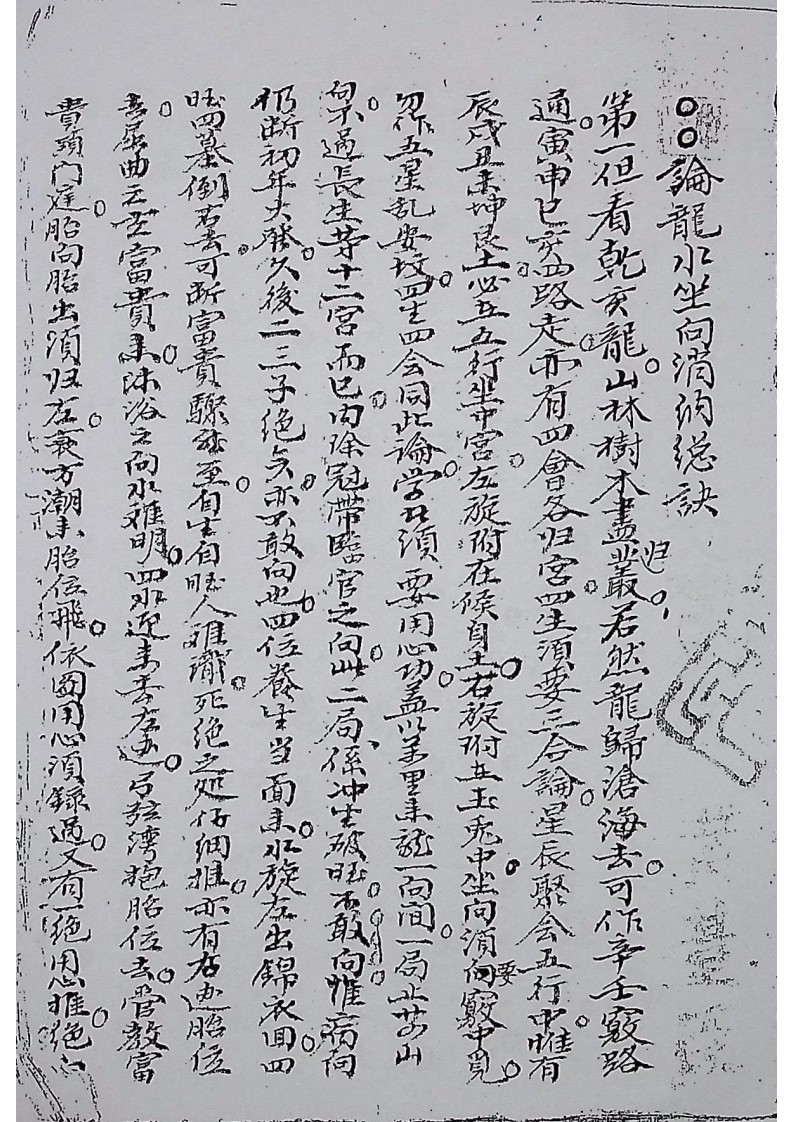 論龍水坐向消納總訣
第一但看乾亥龍。山林樹木盡歸叢。若然龍歸滄海去。可作辛壬竅路
通。寅申巳亥四路走。亦有四會各归宮。四生須要三合論。星辰聚会五行中。惟有
辰戌丑未坤艮土。必五五行坐中宮。左旋附在候自土。右旋附五土兎中坐向須要向竅中覓。
忽作五星乱安坟。四生四会同此論。学者須要用心功。盖以万里来龍一向间。一局二十四山
向。不過長生等十二宮而已。内除冠帶臨官之向。此二局、係冲生破旺。不敢向。惟病向
仍断初年大發。久後二三子绝矣。亦不敢向也。四位養生当面来。水旋左出錦衣回。四
旺四墓倒右去。可断富貴驟然至。自生自旺人难識。死绝之処仔细推。亦有右边胎位
去。屈曲之玄富貴来。沐浴之向水难明。四水迎来去左边。弓弦湾抱胎位去。管教富
貴顕门庭。胎向胎出须归左。衰方潮来胎位飛。依図用心须録過。又有一绝用心推。绝心